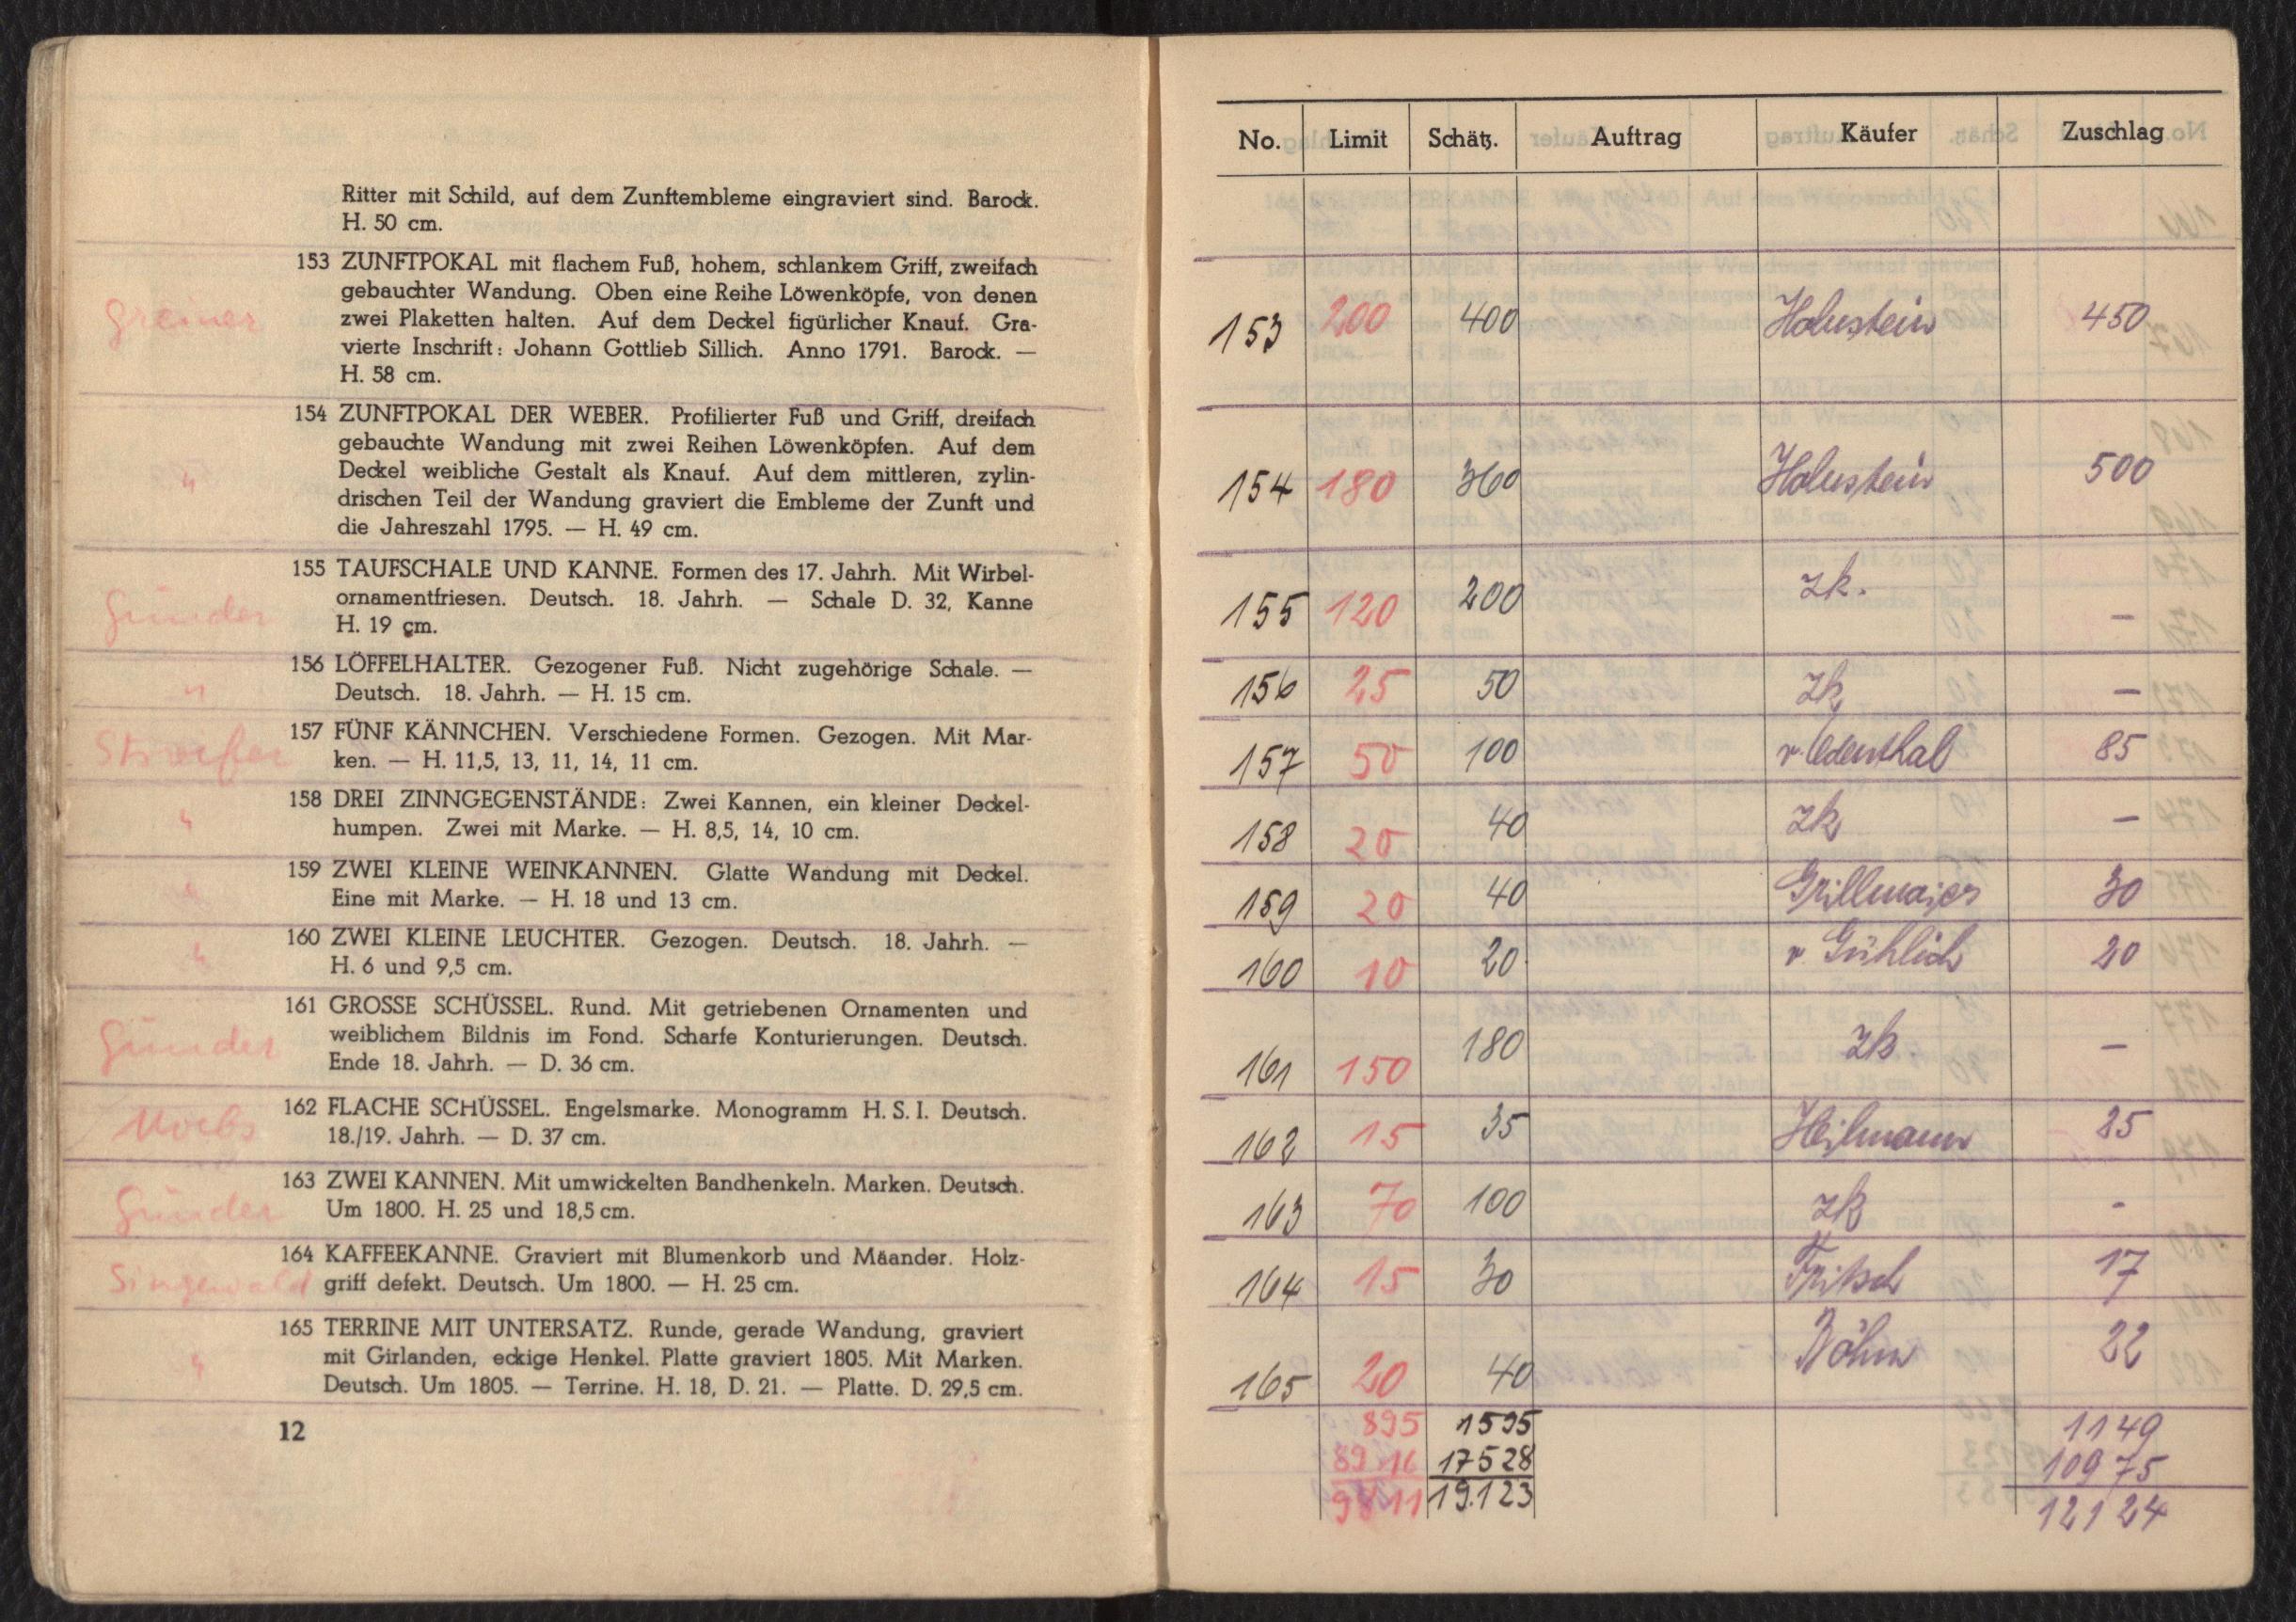 Ritter mit Schild, auf dem Zunftembleme eingraviert sind. Barock.
H. 50 cm.
153 ZUNFTPOKAL mit flachem Fuß, hohem, schlankem Griff, zweifach
gebauchter Wandung. Oben eine Reihe Löwenköpfe, von denen
zwei Plaketten halten. Auf dem Deckel figürlicher Knauf. Gra-
vierte Inschrift: Johann Gottlieb Sillich. Anno 1791. Barock. —
H. 58 cm.
Greiner
154 ZUNFTPOKAL DER WEBER. Profilierter Fuß und Griff, dreifach
gebauchte Wandung mit zwei Reihen Löwenköpfen. Auf dem
Deckel weibliche Gestalt als Knauf. Auf dem mittleren, zylin-
drischen Teil der Wandung graviert die Embleme der Zunft und
die Jahreszahl 1795. — H. 49 cm.
"
155 TAUFSCHALE UND KANNE. Formen des 17. Jahrh. Mit Wirbel-
ornamentfriesen. Deutsch. 18. Jahrh. — Schale D. 32, Kanne
H. 19 cm.
Gründer
156 LÖFFELHALTER. Gezogener Fuß. Nicht zugehörige Schale. —
Deutsch. 18. Jahrh. — H. 15 cm.
"
157 FÜNF KÄNNCHEN. Verschiedene Formen. Gezogen. Mit Mar-
ken. — H. 11,5, 13, 11, 14, 11 cm.
158 DREI ZINNGEGENSTÄNDE: Zwei Kannen, ein kleiner Deckel-
humpen. Zwei mit Marke. — H. 8,5, 14, 10 cm.
"
159 ZWEI KLEINE WEINKANNEN. Glatte Wandung mit Deckel.
Eine mit Marke. — H. 18 und 13 cm.
"
160 ZWEI KLEINE LEUCHTER. Gezogen. Deutsch. 18. Jahrh. —
H. 6 und 9,5 cm.
"
161 GROSSE SCHÜSSEL. Rund. Mit getriebenen Ornamenten und
weiblichem Bildnis im Fond. Scharfe Konturierungen. Deutsch.
Ende 18. Jahrh. — D. 36 cm.
Gründer
162 FLACHE SCHÜSSEL. Engelsmarke. Monogramm H. S. I. Deutsch.
18./19. Jahrh. — D. 37 cm.
163 ZWEI KANNEN. Mit umwickelten Bandhenkeln. Marken. Deutsch.
Um 1800. H. 25 und 18,5 cm.
Gründer
164 KAFFEEKANNE. Graviert mit Blumenkorb und Mäander. Holz-
griff defekt. Deutsch. Um 1800. — H. 25 cm.
Singewald
165 TERRINE MIT UNTERSATZ. Runde, gerade Wandung, graviert
mit Girlanden, eckige Henkel. Platte graviert 1805. Mit Marken.
Deutsch. Um 1805. — Terrine. H. 18, D. 21. — Platte. D. 29,5 cm.
"
12
No. Limit Schätz. Auftrag Käufer Zuschlag
153 200 400 Holnstein 450
154 180 360 Holnstein 500
155 120 200 zk. —
156 25 50 zk —
157 50 100 v. Odenthal 85
158 20 40 zk —
159 20 40 Grillmaier 30
160 10 20 v 20
161 150 180 zk. —
162 15 35 Heilmann 25
163 70 100 zk -
164 15 30 Fritsch 17
165 20 40 Böhm 22
895 1595 1149
8916 17528 10975
9811 19.123 12124